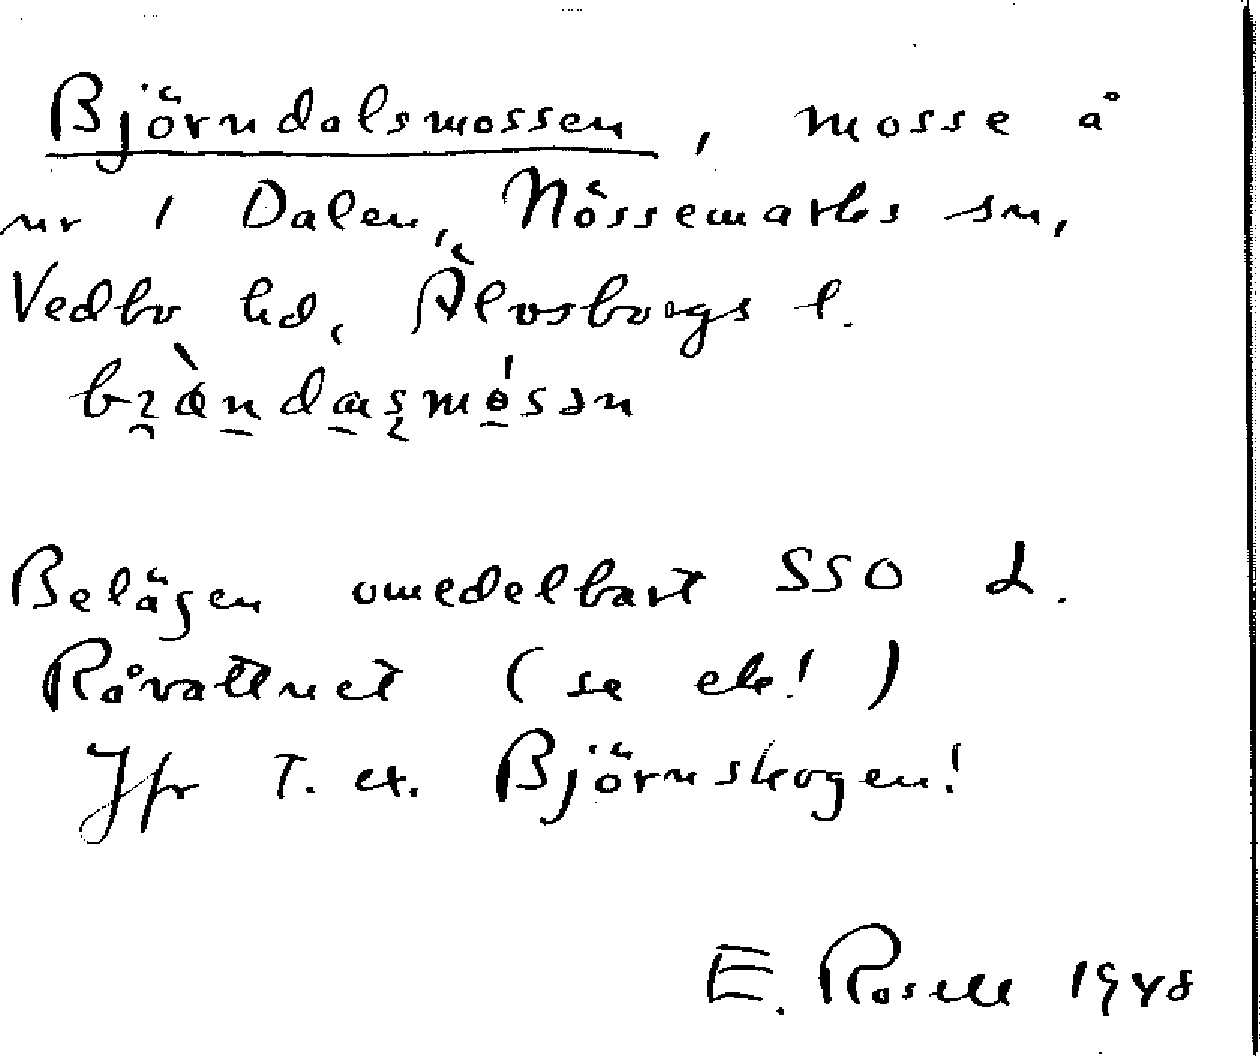 Björndalsmossen, mosse å
nr 1 Dalen, Nössemarks sn,
Vedbo hd, Älvsborgs l.
Belägen omedelbart SSO d.
Råvattnet (se ek!)
Jfr T. ex. Björnskogen!
E. Rosell 1948